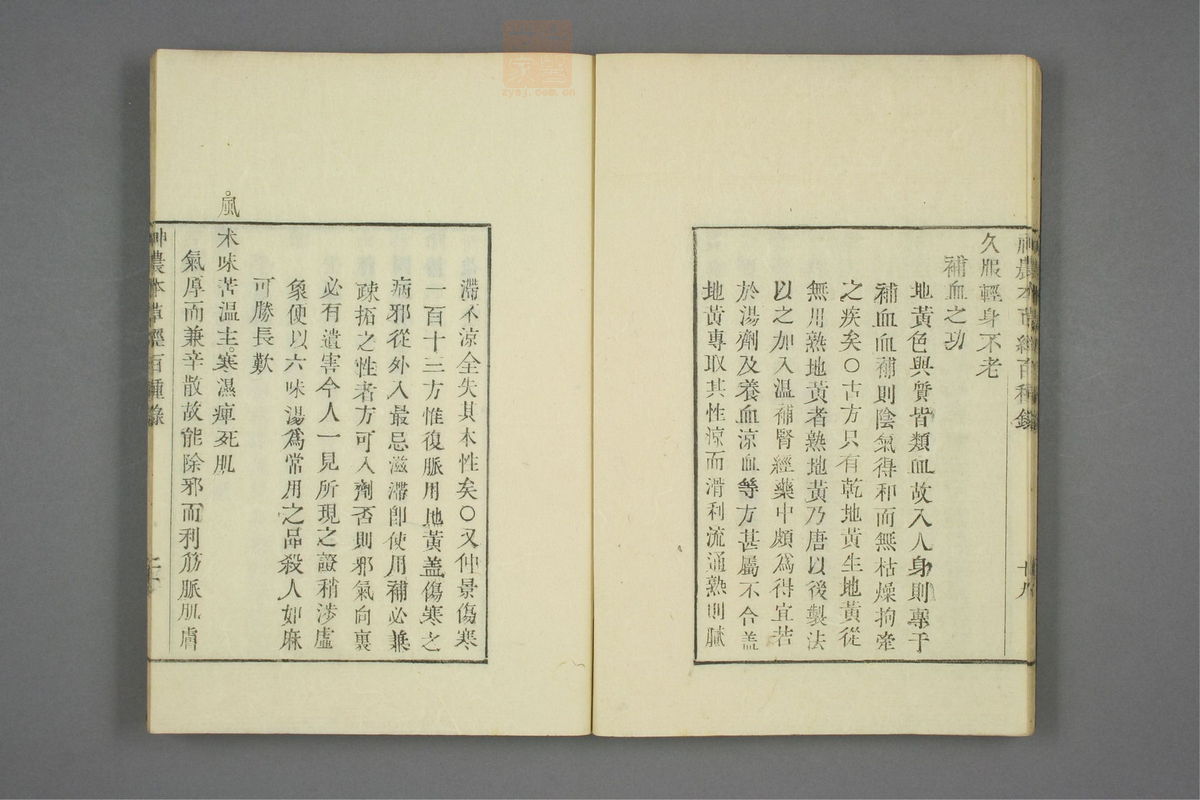 神農本草經百種錄
十九
久服輕身不老
補血之功
地黃色與質皆類血故入人身則專于
補血血補則陰氣得和而無枯燥拘牽
之疾矣○古方只有乾地黃生地黃從
無用熟地黃者熟地黃乃唐以後製法
以之加入溫補腎經藥中頗爲得宜若
於湯劑及養血涼血等方甚屬不合蓋
地黃專取其性涼而滑利流通熟則膩
滯不涼全失其本性矣○又仲景傷寒
一百十三方惟復脈用地黃蓋傷寒之
病邪從外入最忌滋滯卽使用補必兼
疎拓之性者方可入劑否則邪氣向裏
必有遺害今人一見所現之證稍涉虛
象便以六味湯爲常用之品殺人如麻
可勝長歎
朮味苦溫主。寒濕痺死肌
。風
氣厚而兼辛散故能除邪而利筋脈肌膚
神農本草經百種錄
二十
zysj.com.cn